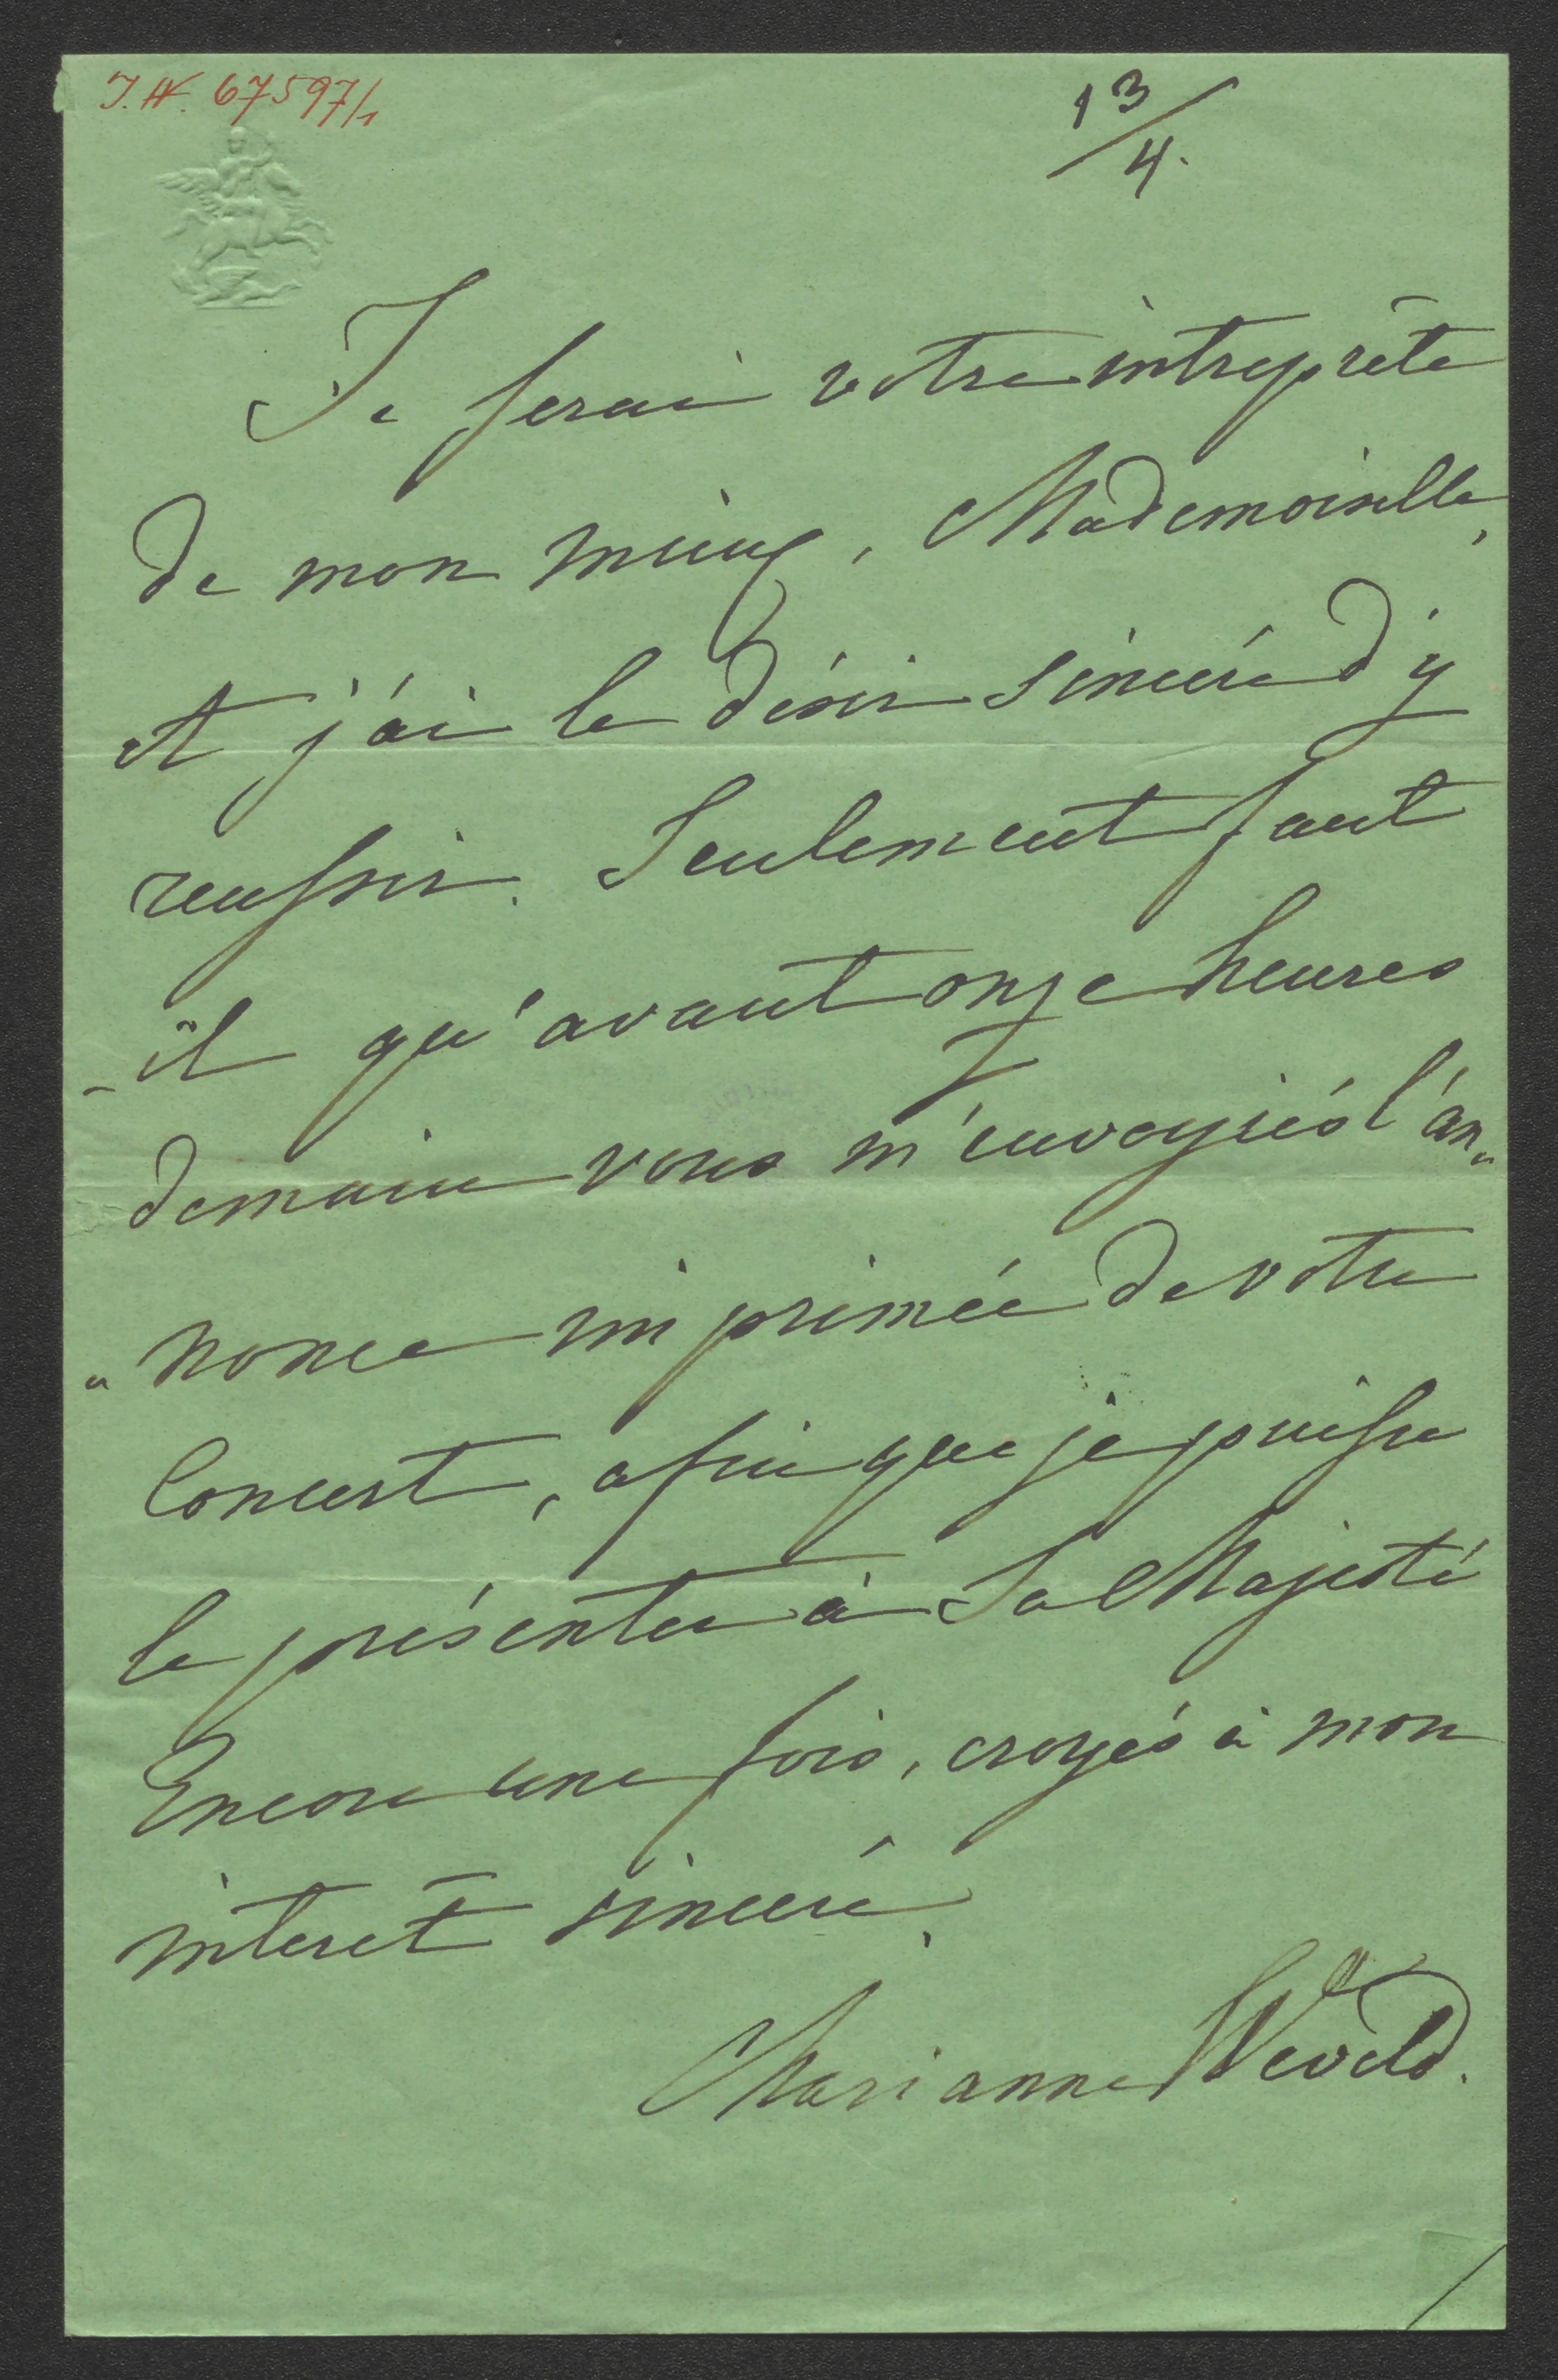 J.N. 67597/1
13/4.
Je serai votre intreprête
de mon mieux, Mademoiselle,
et j'ai le désir sincère d'y
reussir. Seulement faut
-il qu'avant onze heures
demain vous m'envoyiés l'an„
„nonce imprimée de votre
Concert, afin que je puisse
le présenter à Sa Majesté
Encore une fois, croyés à mon
interêt sincère.
Marianne